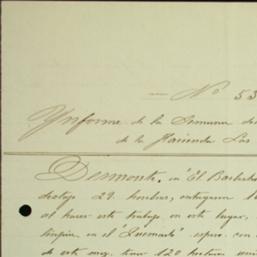 — Nº 53
Ynforme de la Semana de
de la Hacienda Los
Desmonte. en "El Barbecho
destajo 29 hombres, entregaron 1
al hacer este trabajo en este lugar,
limpia en el "Quemado" espero con
de este mes, tener 120 hectaras